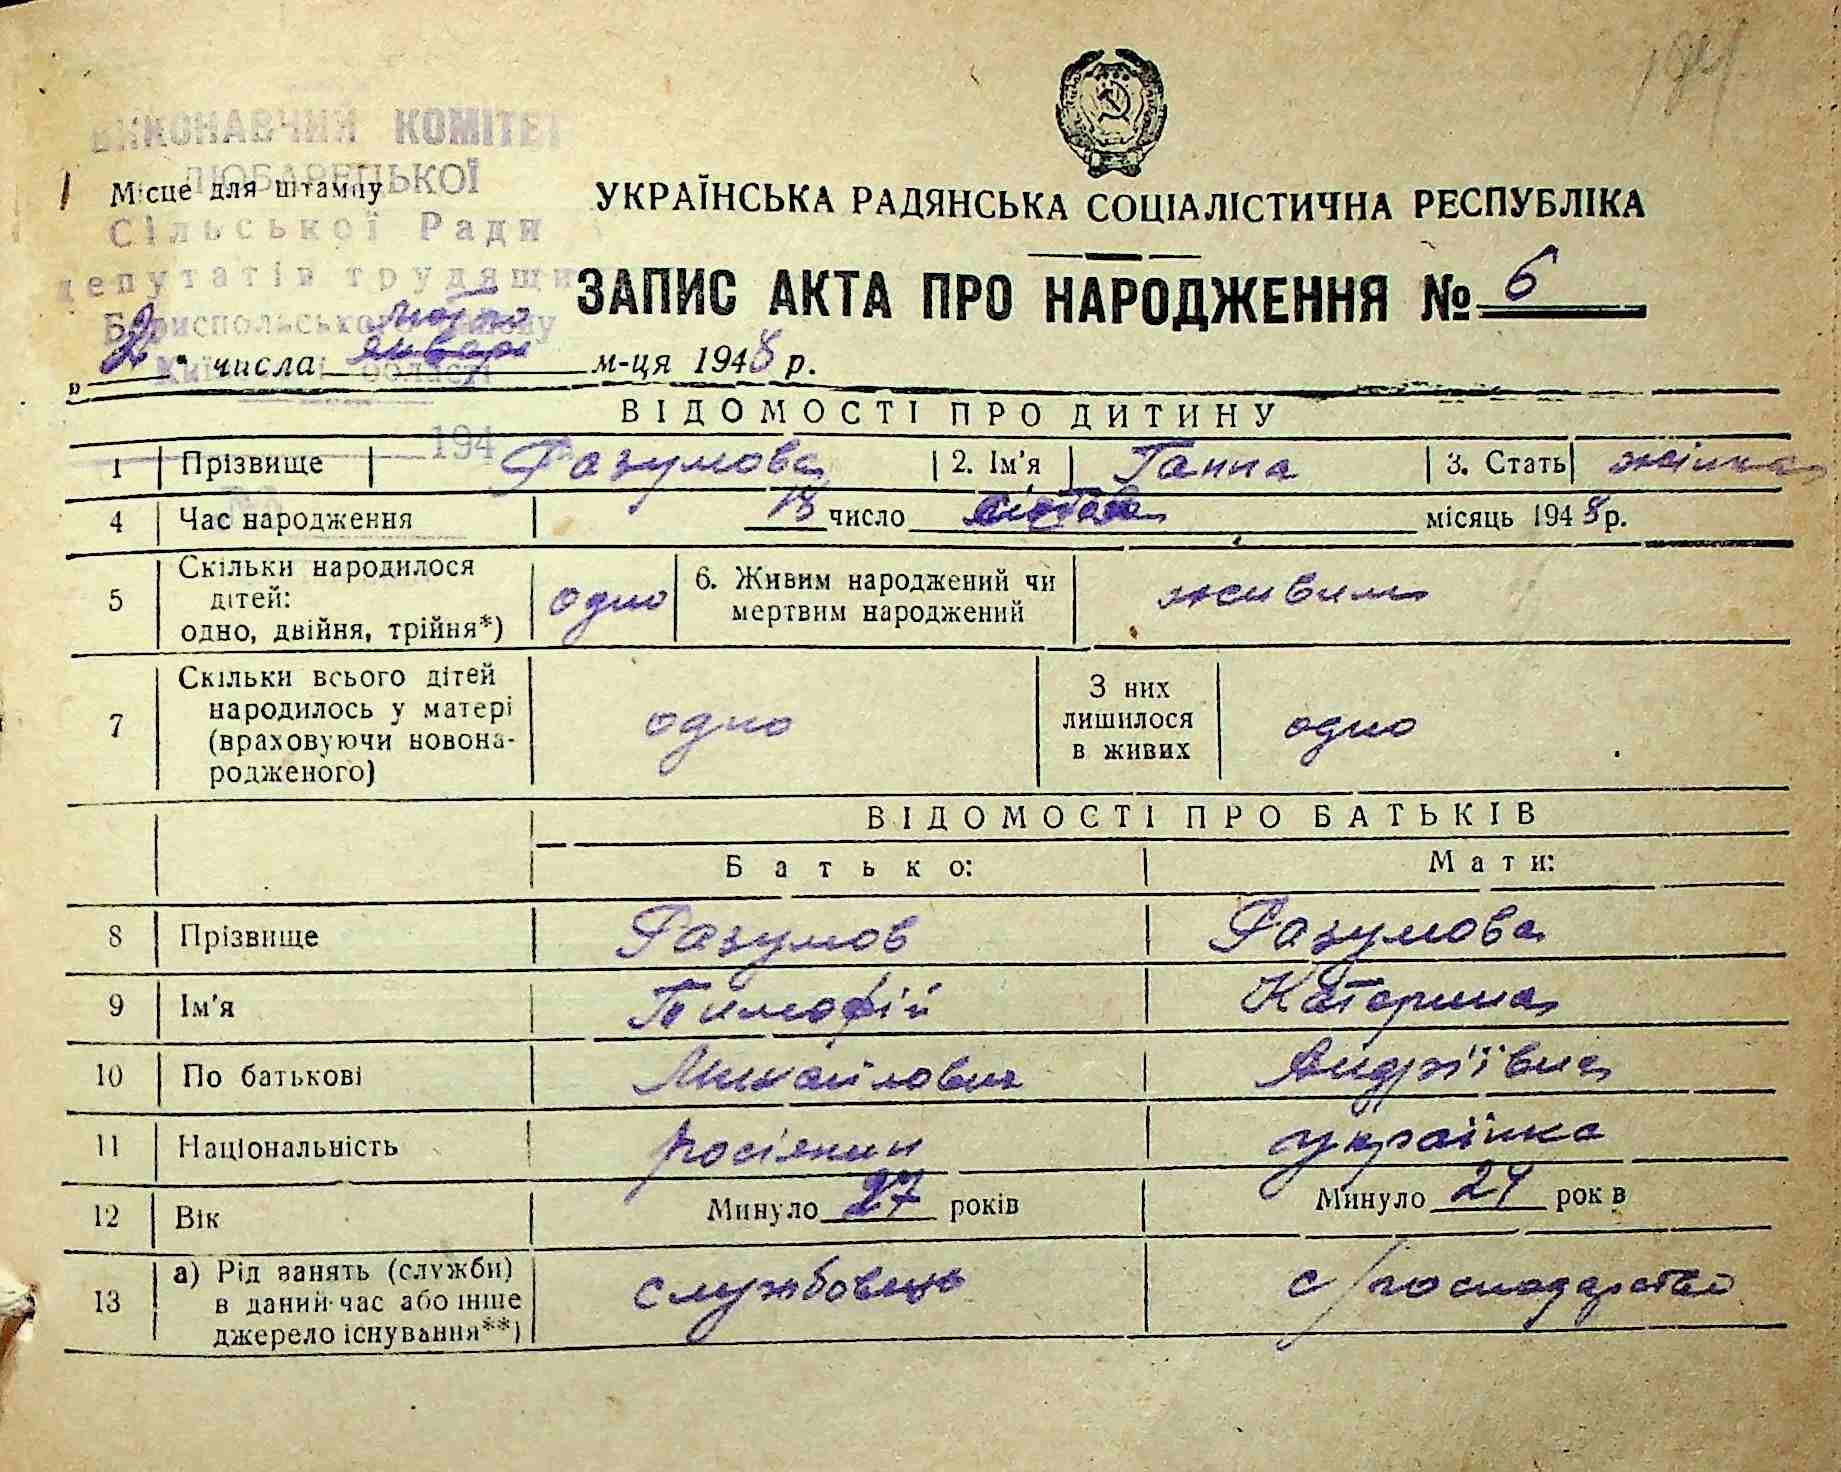 ВИКОНАВЧИЙ КОМІТЕТ
ЛЮБАРЕЦЬКОЇ
Місце для штампу
Сільської Ради
депутатів трудящих
Бориспольського району
Київської області
194
УКРАЇНСЬКА РАДЯНСЬКА СОЦІАЛІСТИЧНА РЕСПУБЛІКА
ЗАПИС АКТА ПРО НАРОДЖЕННЯ № 6
„ 2 " числа января лютого м-ця 1948 р.
ВІДОМОСТІ ПРО ДИТИНУ
1 Прізвище Разумова 2. Ім'я Ганна 3. Стать жінка
4 Час народження 18 число місяць 1948 р.
5 Скільки народилося дітей: одно, двійня, трійня*) одно 6. Живим народжений чи мертвим народжений живим
7 Скільки всього дітей народилось у матері (враховуючи новонародженого) одно З них лишилося в живих одно
ВІДОМОСТІ ПРО БАТЬКІВ
Батько: Мати:
8 Прізвище Разумов Разумова
9 Ім'я Тимофій Катерина
10 По батькові Михайлович Андріївна
11 Національність росіянин українка
12 Вік Минуло 27 років Минуло 24 років
13 а) Рід занять (служби) в даний час або інше джерело існування**) службовець с/господарство